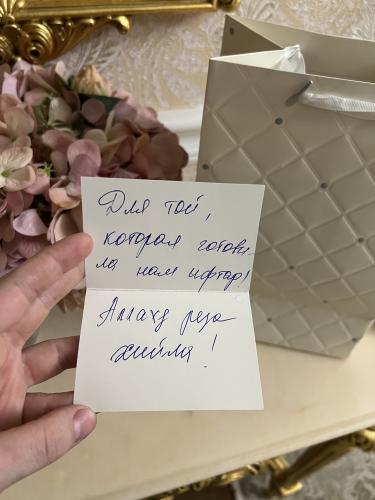 Для той,
которая готови-
ла нам ифтар!
Аллахд реза
хийла!